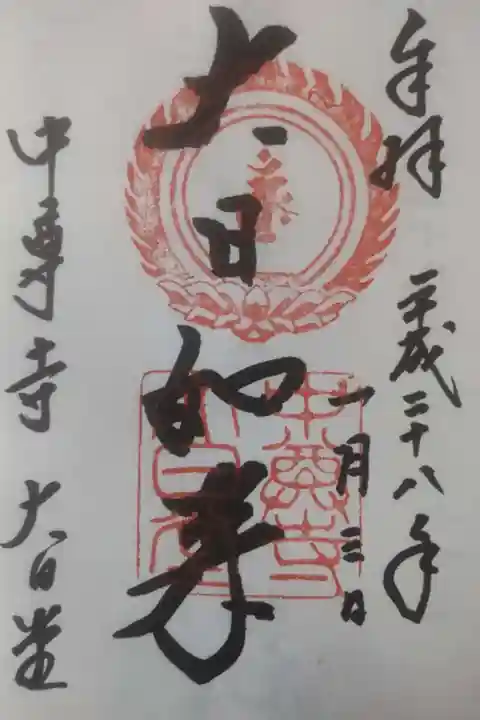 奉拝
平成二十八年
一月三日
大日如来
中尊寺 大日堂
中尊寺
大日堂